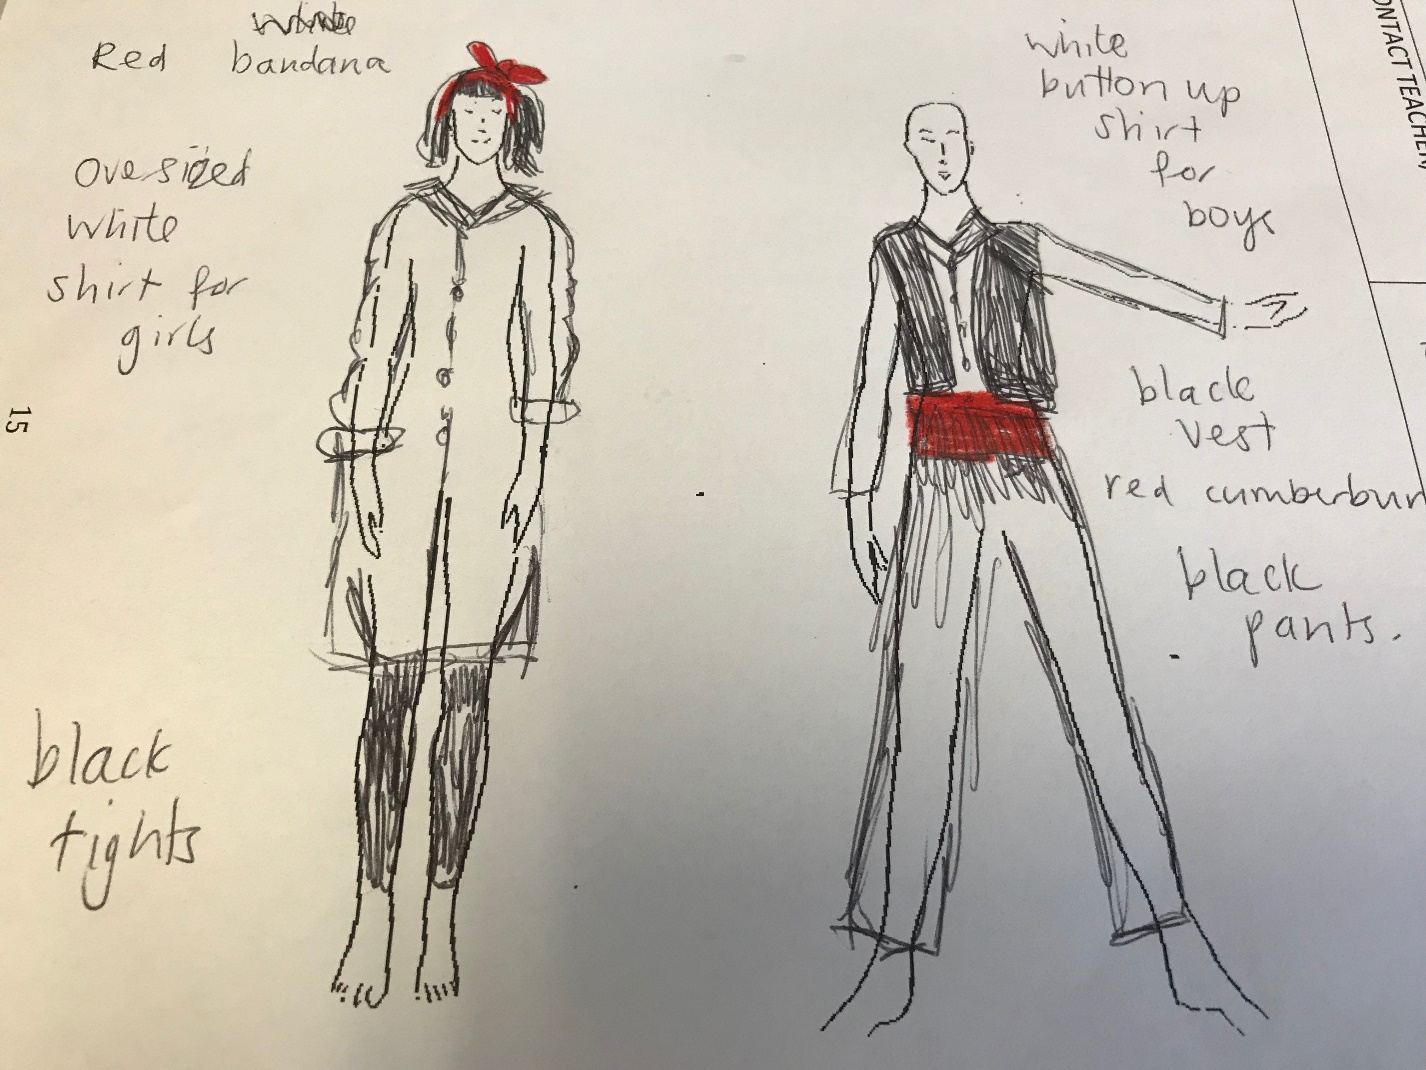 Red bandana
oversized
white
shirt for
girls
black
tights
15
white
button up
shirt
for
boys
black
vest
red cumberbun
black
pants.
ONTACT TEACHER